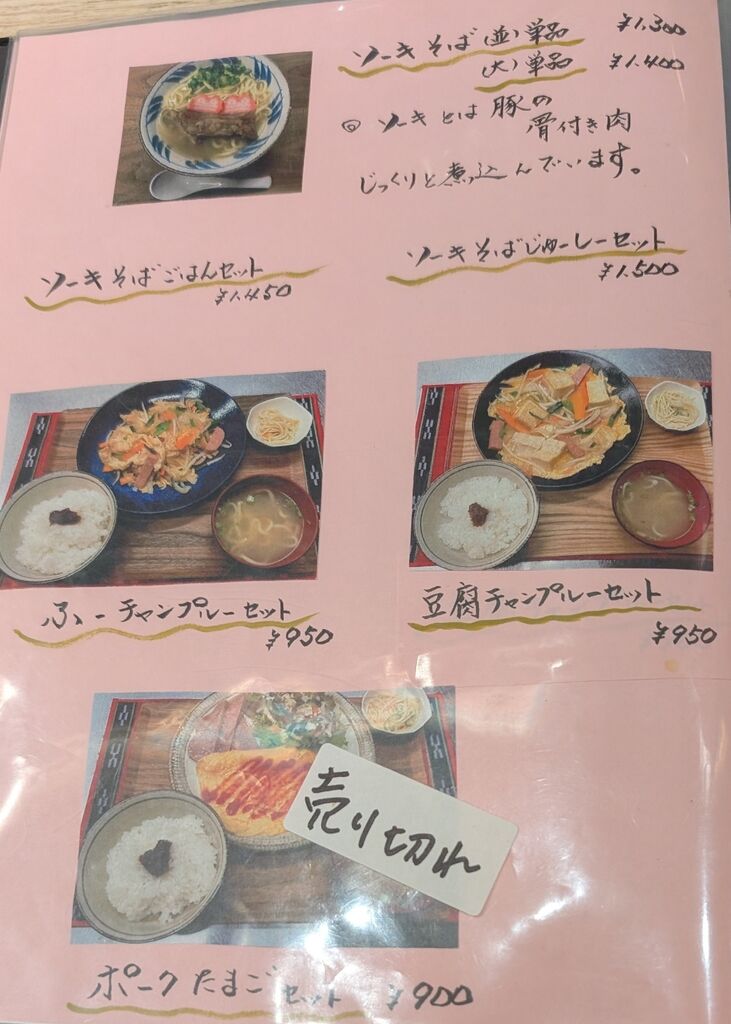 ソーキそば(並)単品 ¥1.300
(大)単品 ¥1.400
◎ ソーキとは豚の
骨付き肉
じっくりと煮込んでいます。
ソーキそばごはんセット
¥1.450
ソーキそばじゅーしーセット
¥1.500
ふーチャンプルーセット
¥950
豆腐チャンプルーセット
¥950
売り切れ
ポークたまごセット ¥900